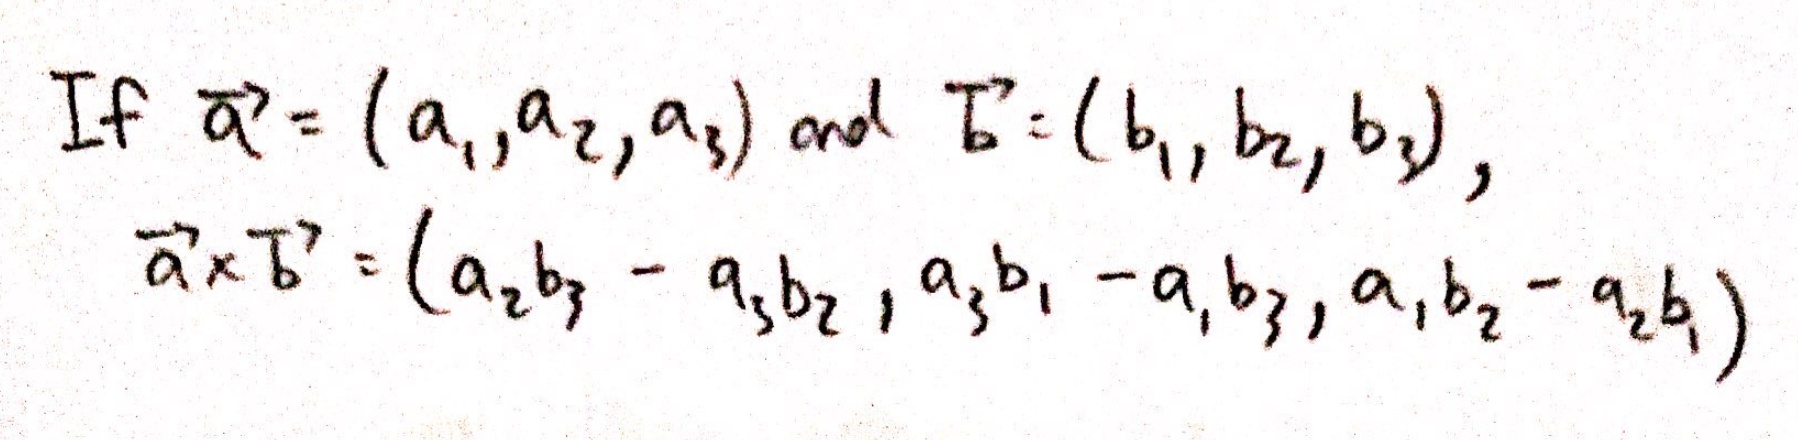 If a⃗ = (a₁, a₂, a₃) and b⃗ = (b₁, b₂, b₃),
a⃗ × b⃗ = (a₂b₃ - a₃b₂, a₃b₁ - a₁b₃, a₁b₂ - a₂b₁)